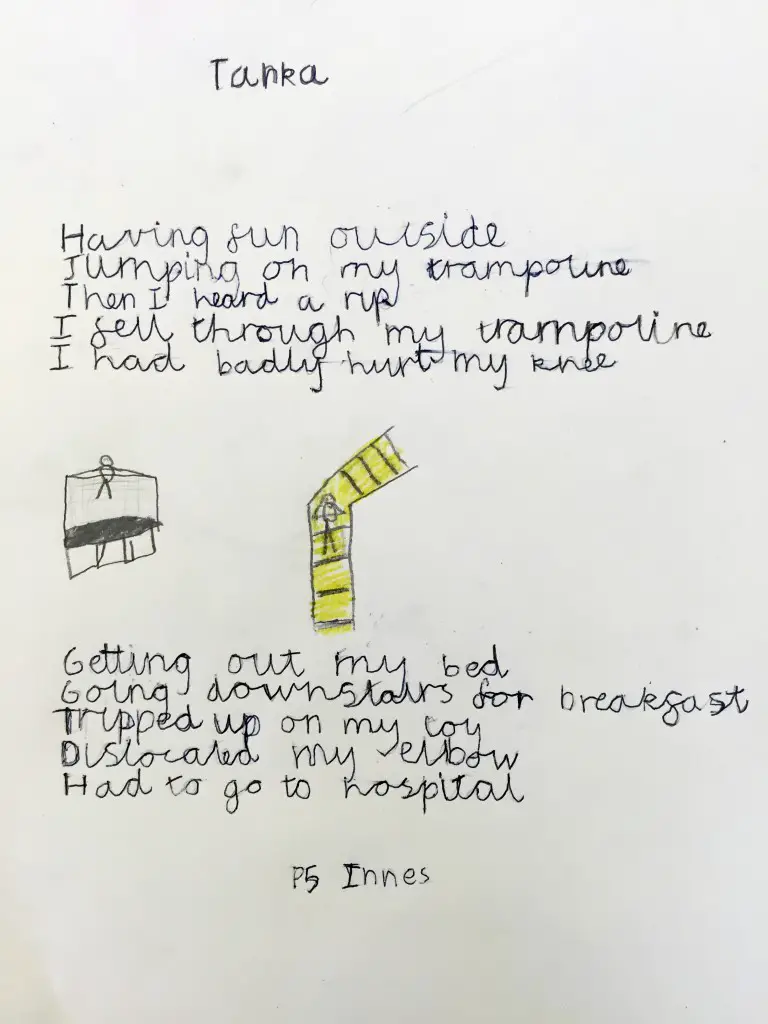 Tanka
Having fun outside
Jumping on my trampoline
Then I heard a rip
I fell through my trampoline
I had badly hurt my knee
Getting out my bed
Going downstairs for breakfast
Tripped up on my toy
Dislocated my elbow
Had to go to hospital
P5 Innes